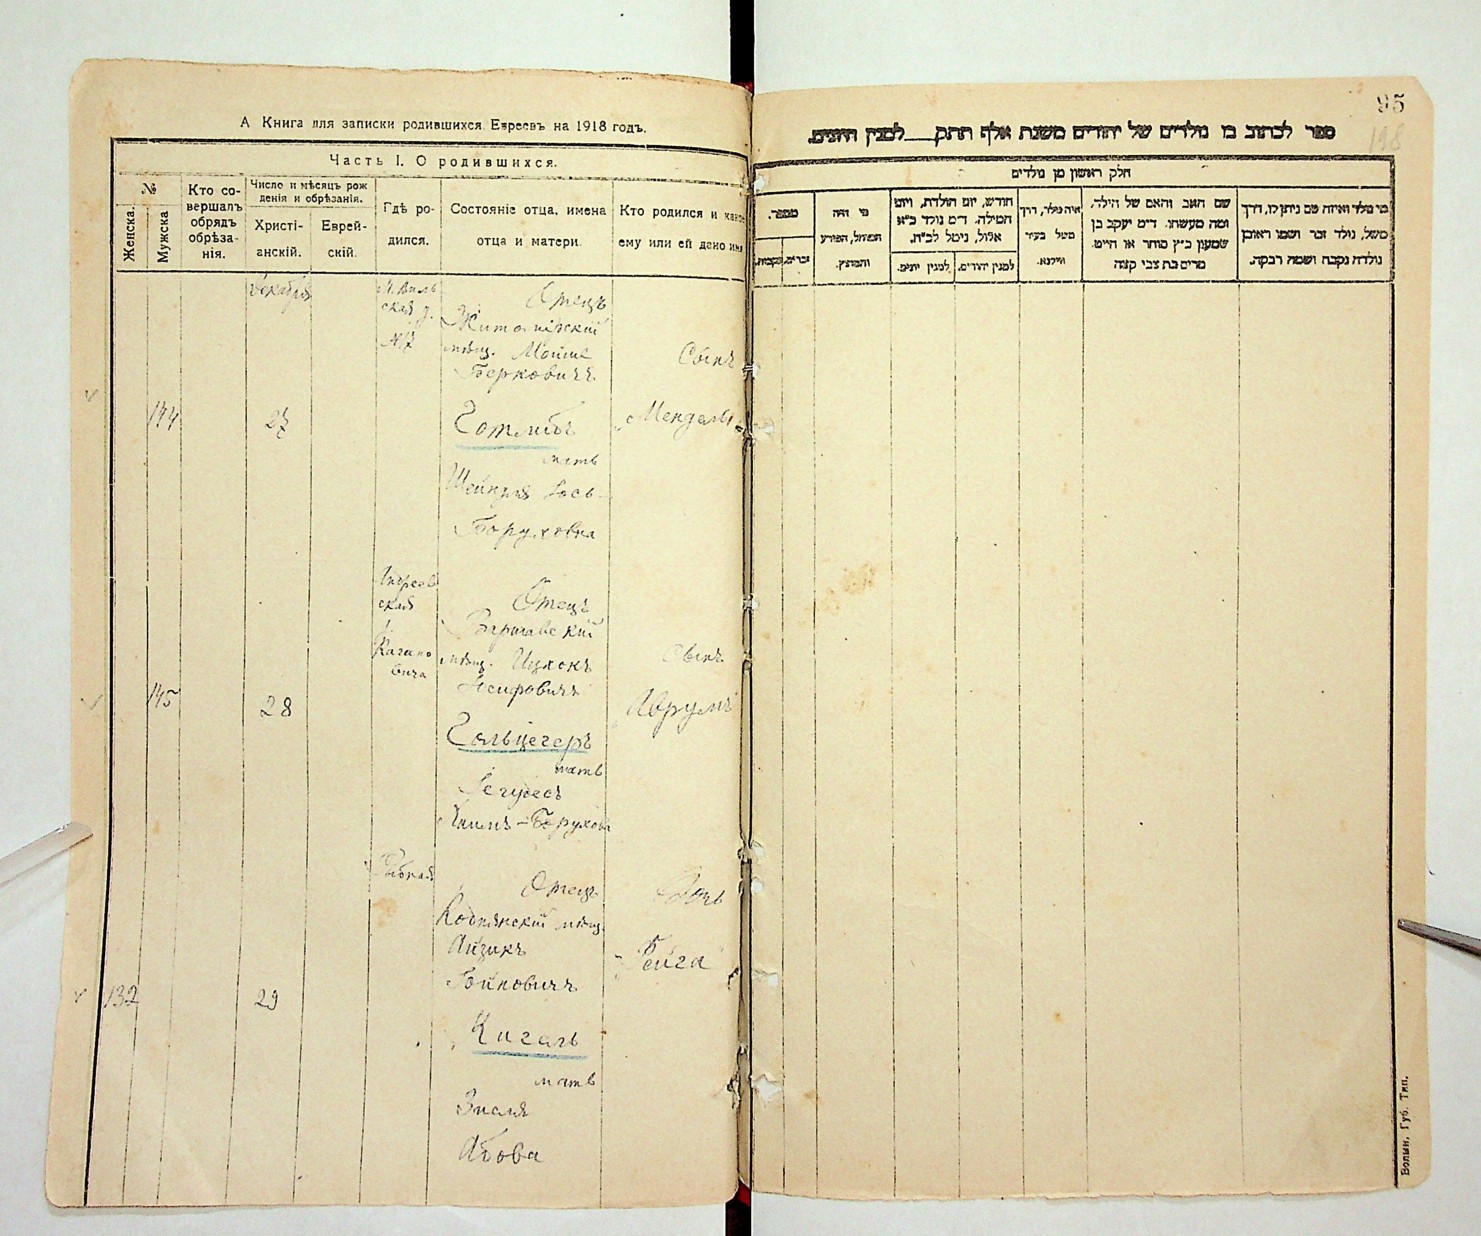 А Книга для записки родившихся Евреевъ на 1918 годъ.
Часть I. О родившихся.
№
Женска.
Мужска
Кто со-
вершалъ
обрядъ
обрѣза-
нія.
Число и мѣсяцъ рож
денія и обрѣзанія.
Христі-
анскій.
Еврей-
скій.
Гдѣ ро-
дился.
Состояніе отца, имена
отца и матери.
Кто родился и какое
ему или ей дано имя
Декабря
144
27
Отецъ
Житомірскій
мѣщ. Мойше
Берковичъ
Готлибъ
мать
Боруховна
Сынъ
„Мендель"
145
28
Отецъ
Варшавскій
мѣщ. Ицхокъ
Іосифовичъ
Гольцегеръ
мать
Хаимъ-Борухова
Сынъ
Аврумъ
132
29
Рыбная
Отецъ
мѣщ.
Айзикъ
Кигель
мать
Зисля
Абова
Дочь
„Фейга"
95
198
ספר לכתוב בו נולדים של יהודים משנת אלף תתק___למנין היונים.
חלק ראשון מן נולדים
מספר.
זכרים.
נקבות.
מי היה
המוהל, הפורע
והמוצץ.
חודש, יום הולדת, ויום
המילה. ד״מ נולד כ״א
אלול, ניטל לכ״ח.
למנין יונים.
למנין יהודים.
איה נולד, דרך
משל בעיר
ווילנא.
שם האב והאם של הילד,
ומה מעשהו. ד״מ יעקב בן
שמעון כ״ץ סוחר או חייט.
מרים בת צבי קצה
מי נולד ואיזה שם ניתן לו, דרך
משל, נולד זכר ושמו ראובן
נולדה נקבה ושמה רבקה.
Волын. Губ. Тип.